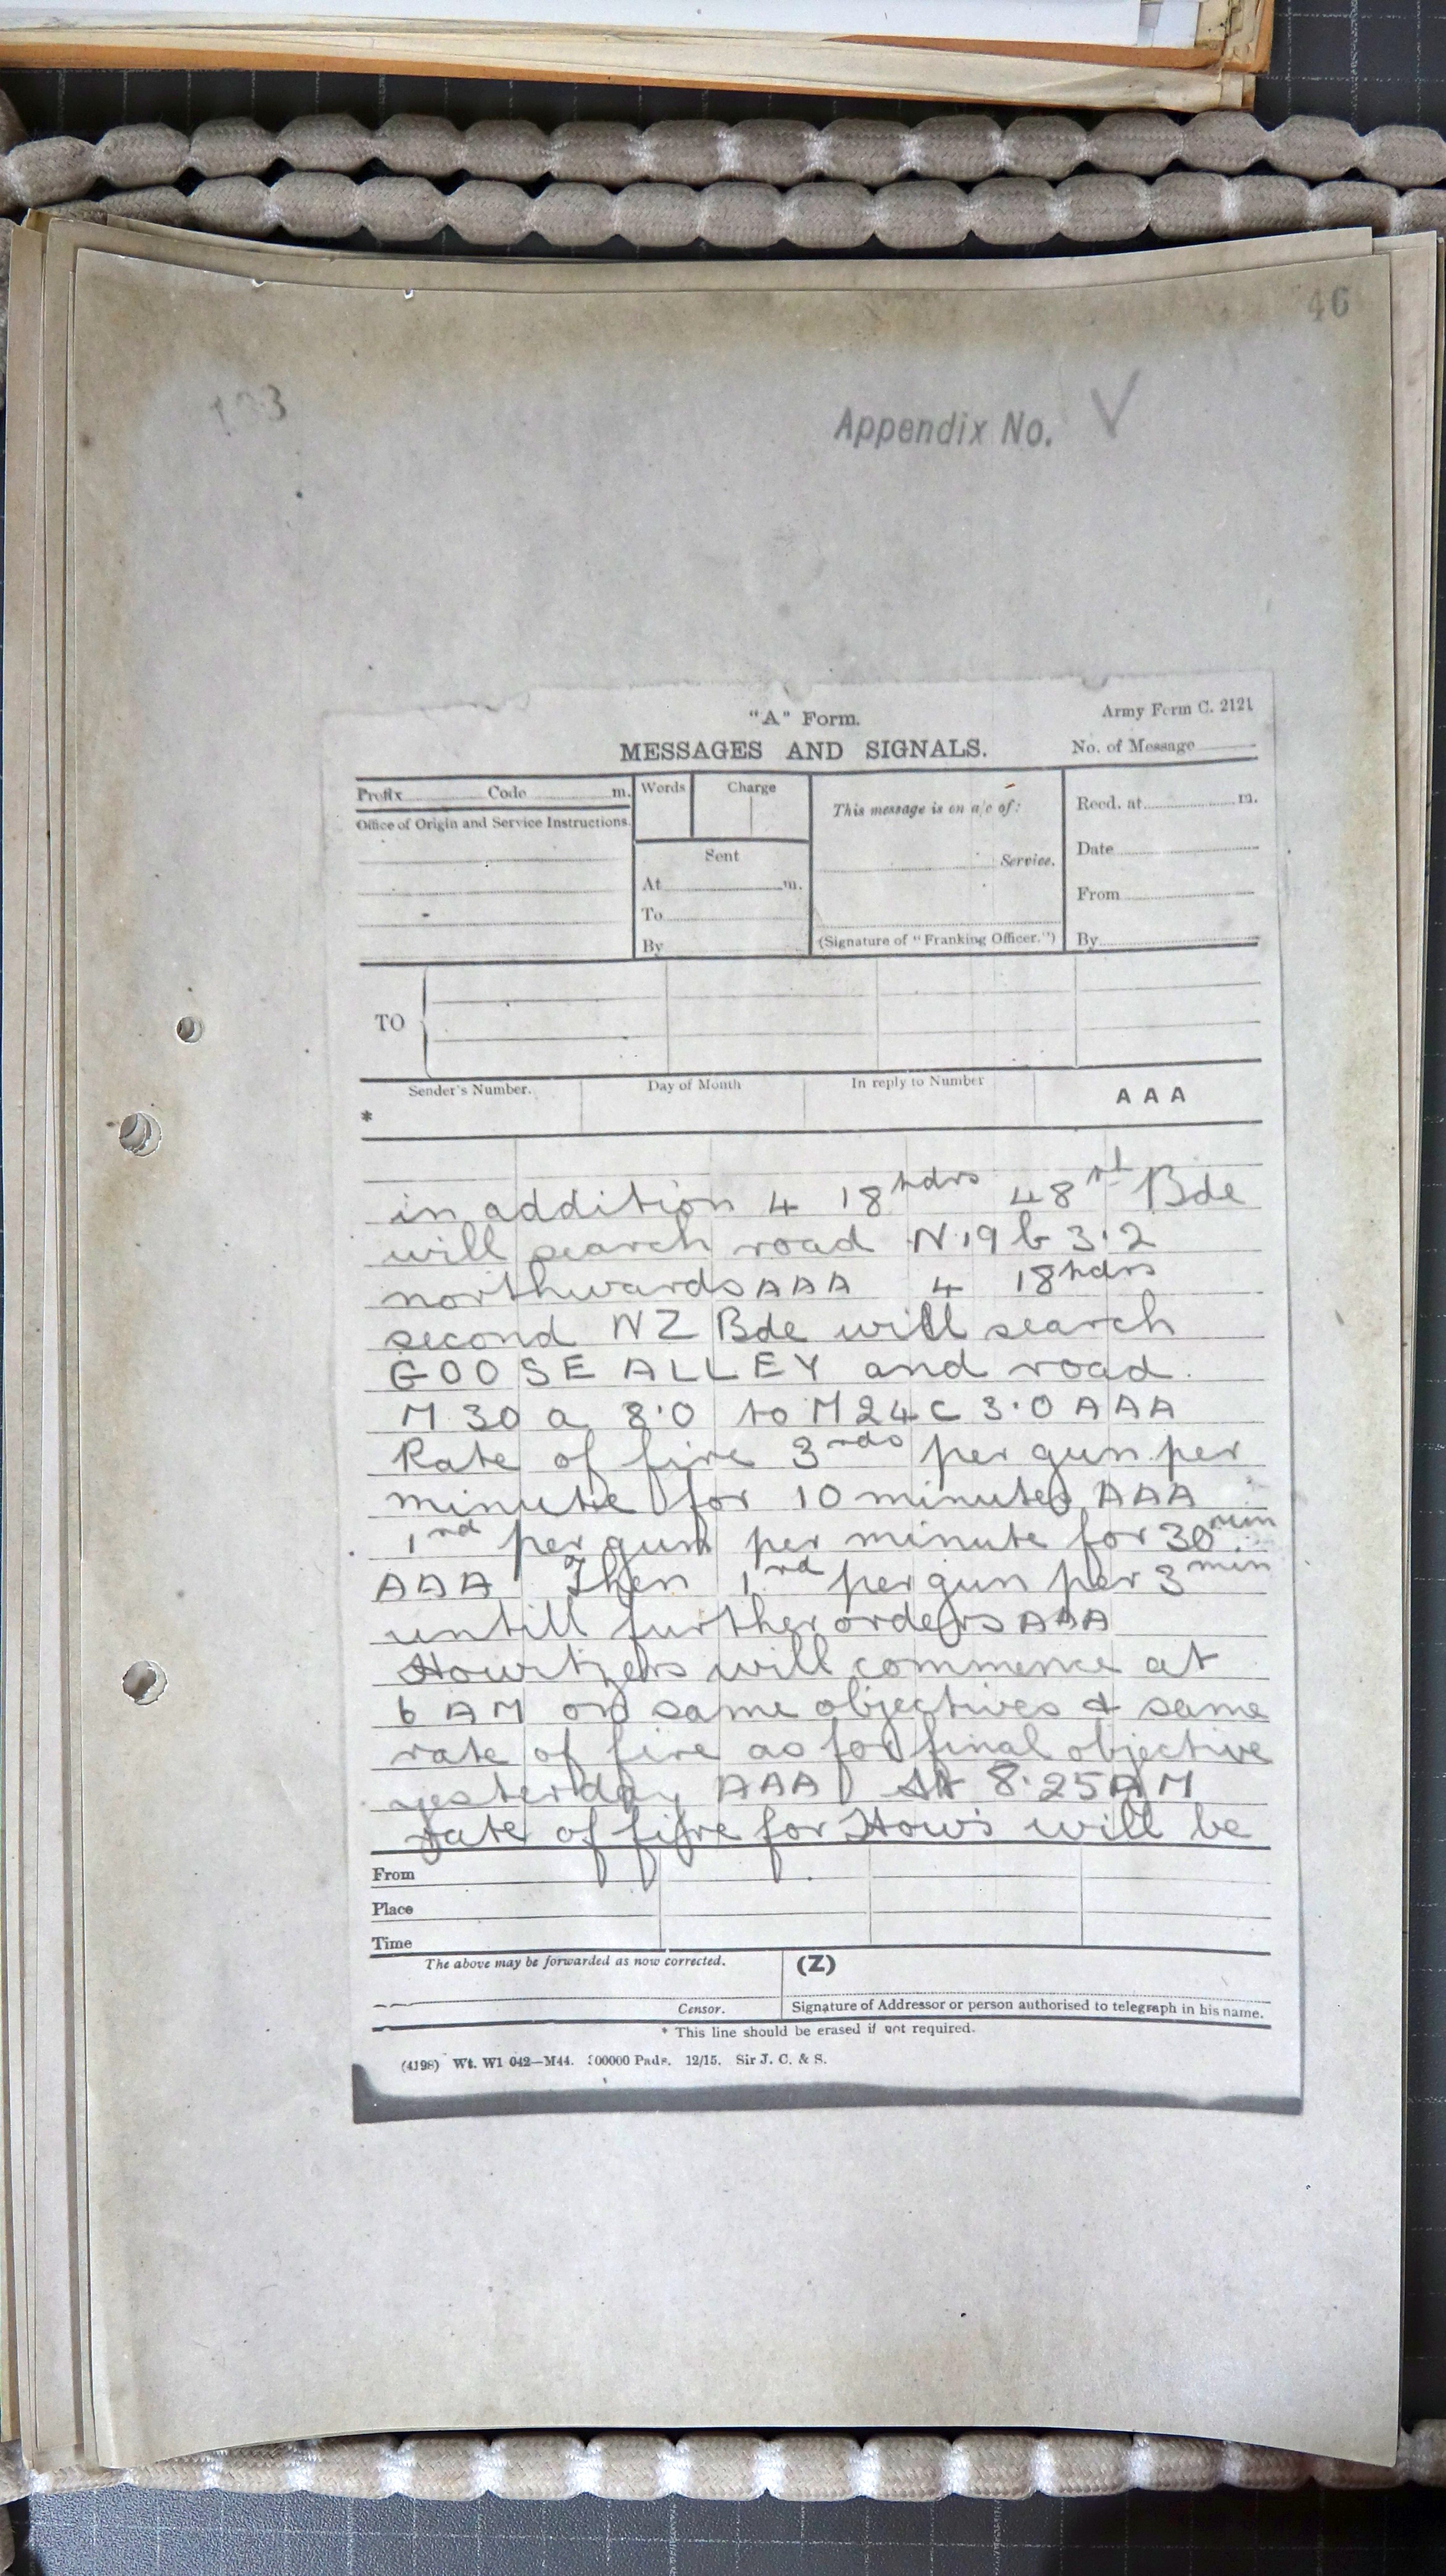 46
Appendix No. V
"A" Form.
Army Form C. 2121
MESSAGES AND SIGNALS.
No. of Message
Prefix Code m.
Words
Charge
This message is on a/c of:
Recd. at m.
Office of Origin and Service Instructions.
Sent
Service.
Date
At m.
From
To
By
(Signature of "Franking Officer.")
By
TO
Sender's Number.
Day of Month
In reply to Number
AAA
*
in addition 4 18hdrs 48th Bde
will search road N.19 b 3.2
northwards AAA 4 18hdrs
second NZ Bde will search
GOOSE ALLEY and road.
M 30 a 8.0 to M 24 C 3.0 AAA
Rate of fire 3rds per gun per
minute for 10 minutes AAA
1rd per gun per minute for 30 min
AAA Then 1rd per gun per 3 min
untill further orders AAA
Howitzers will commence at
6 AM on same objectives & same
rate of fire as for final objective
yesterday AAA At 8.25 AM
rate of fire for Hows will be
From
Place
Time
The above may be forwarded as now corrected.
(Z)
Censor.
Signature of Addressor or person authorised to telegraph in his name.
* This line should be erased if not required.
(4198) Wt. W1 042—M44. 00000 Pads. 12/15. Sir J. C. & S.